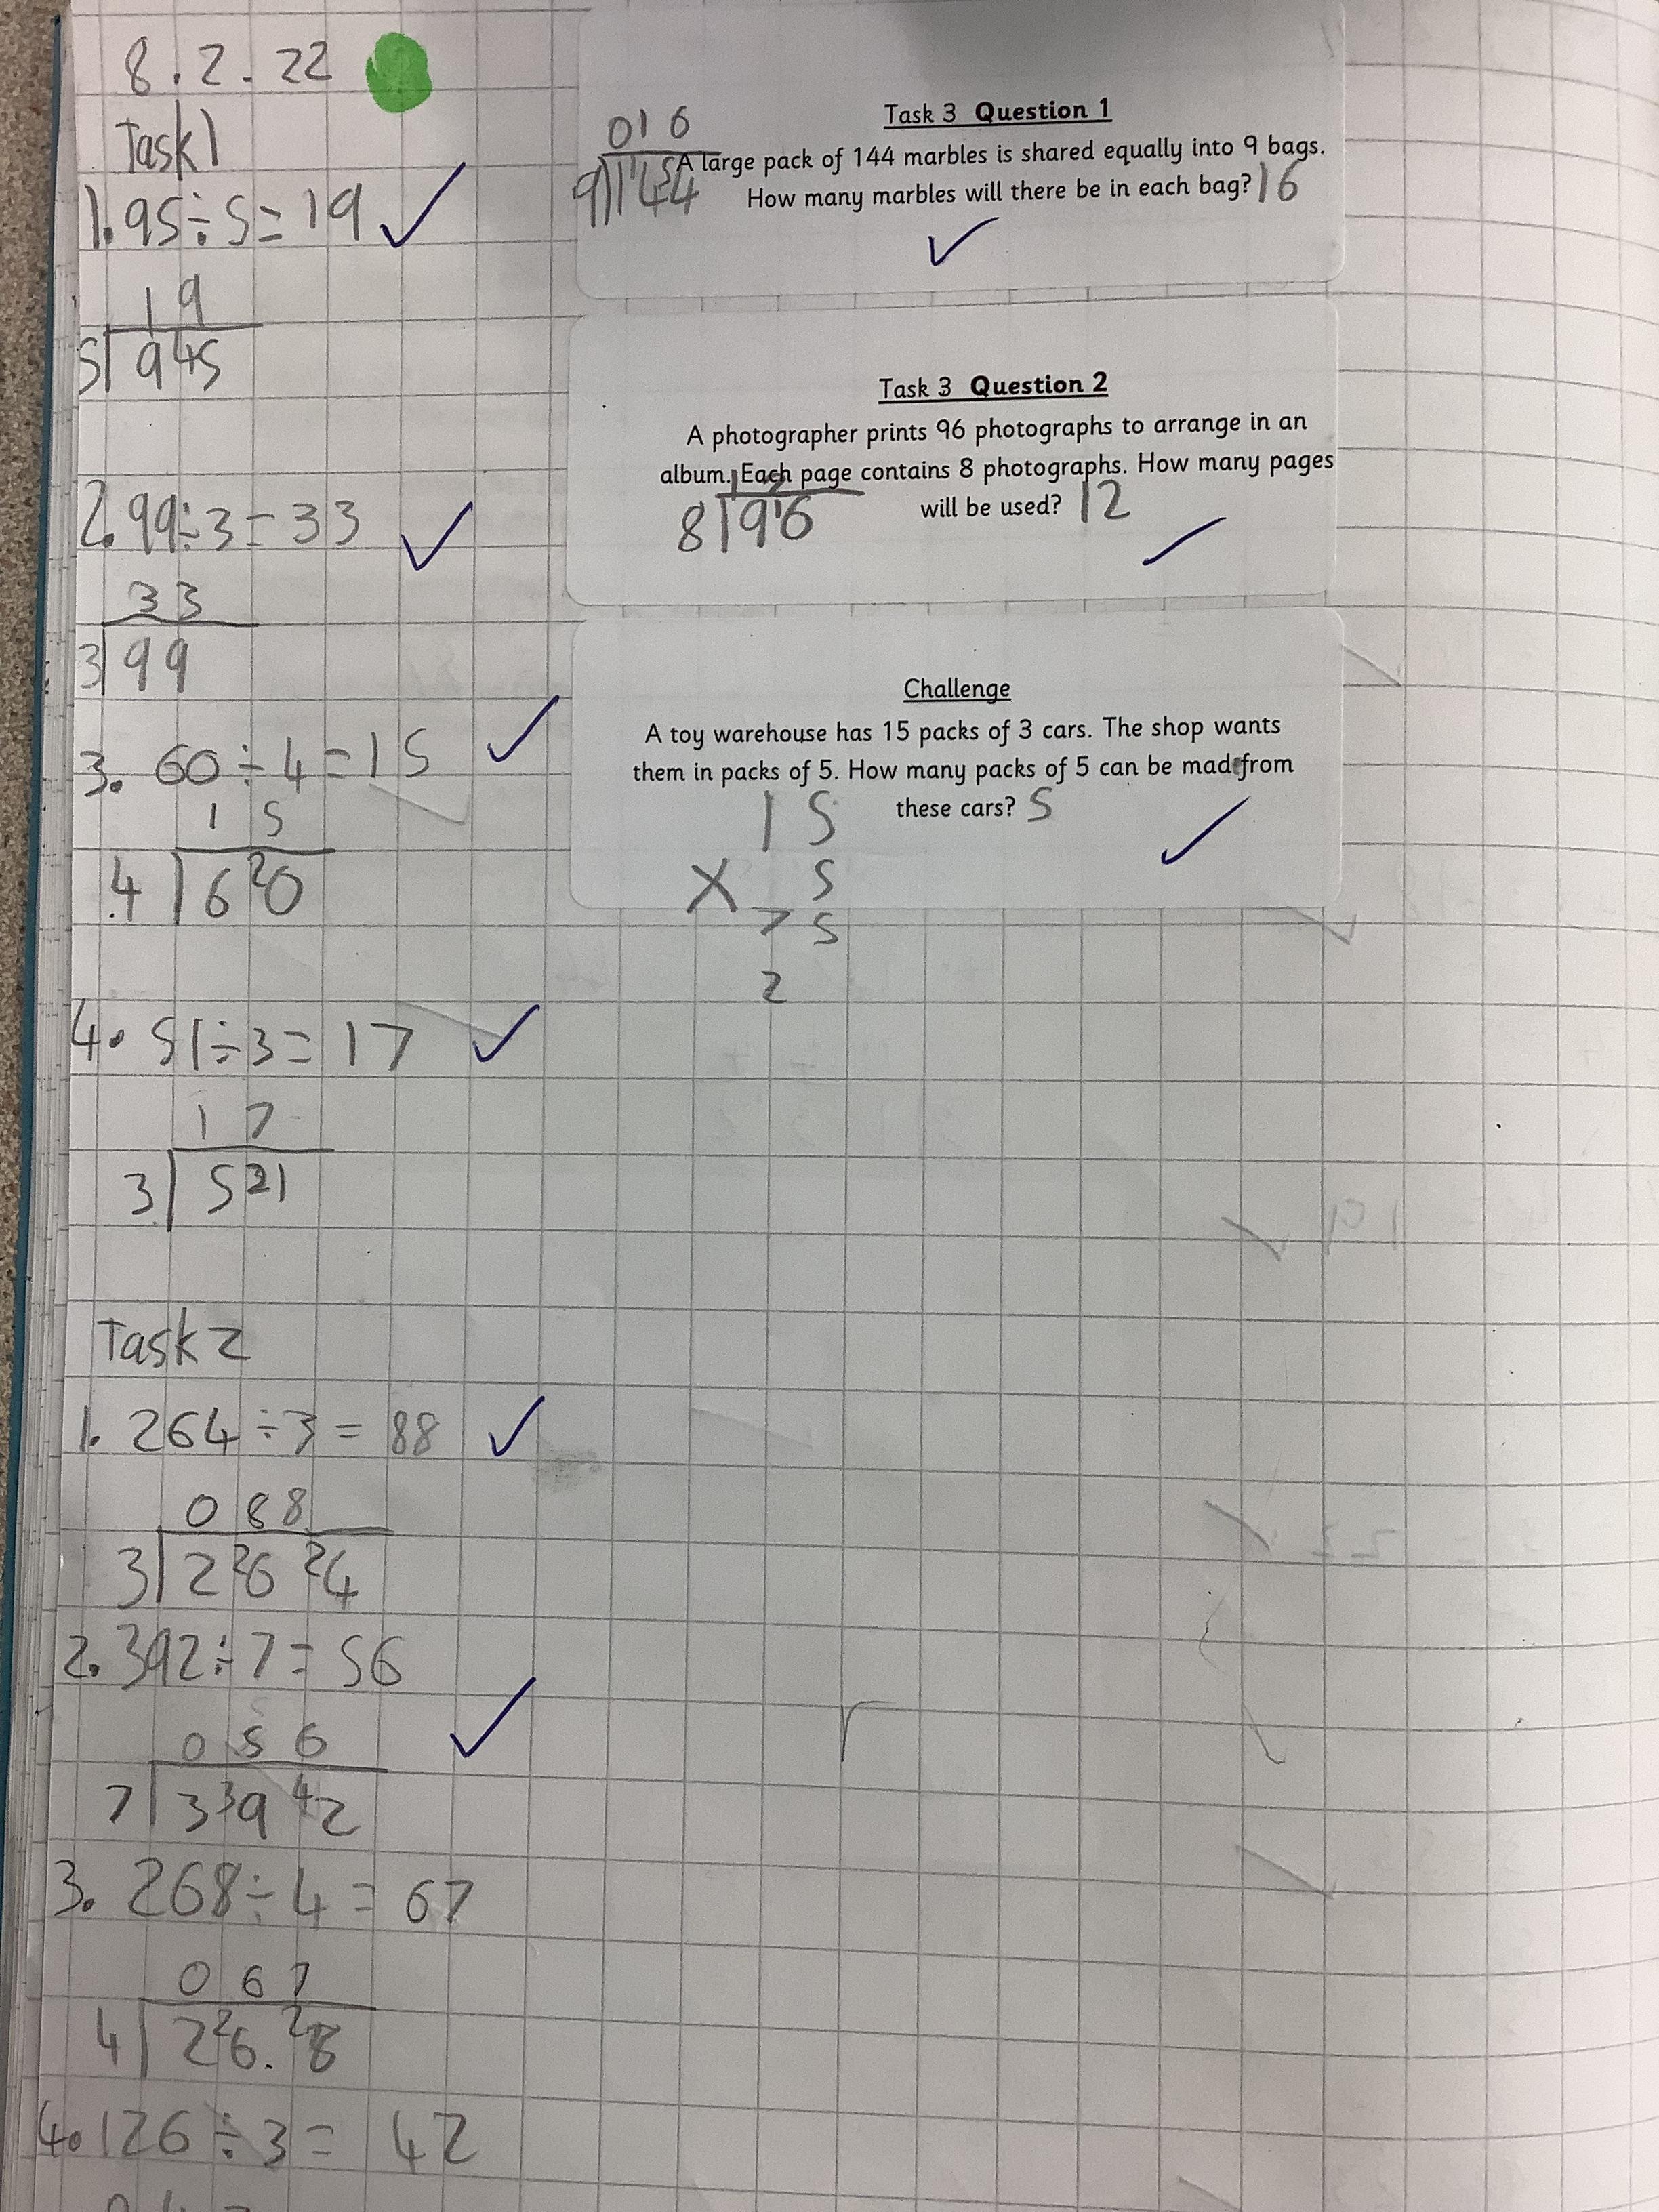 8.2.22
Task 1
1. 95÷5=19
19
5 9 45
2. 99÷3=33
33
3 99
3. 60÷4=15
15
4 6 20
4. 51÷3=17
17
3 5 21
Task 2
1. 264÷3=88
088
3 2 26 24
2. 392÷7=56
056
7 3 39 42
3. 268÷4=67
067
4 2 26. 28
4. 126÷3=42
Task 3 Question 1
016
9 1 14 54
A large pack of 144 marbles is shared equally into 9 bags.
How many marbles will there be in each bag? 16
Task 3 Question 2
A photographer prints 96 photographs to arrange in an
album. Each page contains 8 photographs. How many pages
will be used? 12
12
8 9 16
Challenge
A toy warehouse has 15 packs of 3 cars. The shop wants
them in packs of 5. How many packs of 5 can be made from
these cars? 5
15
X 5
75
2